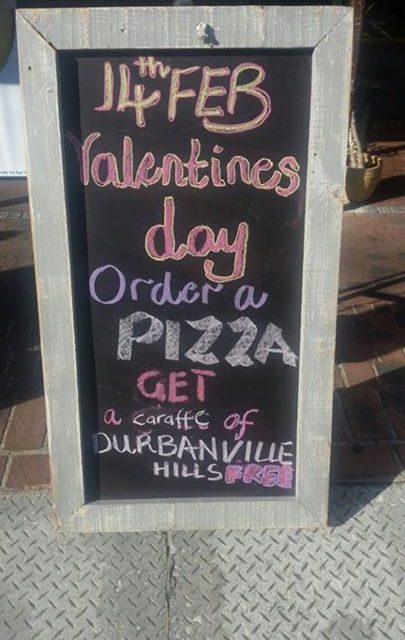 14th FEB
Valentines
day
Order a
PIZZA
GET
a caraffe of
DURBANVILLE
HILLS FREE